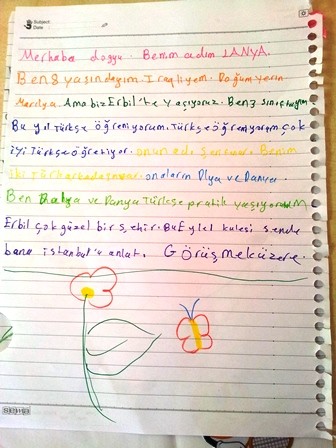 Subject:
Date
Merhaba doğyu. Benim adım LANYA.
Ben 8 yaşındayım. Iraqlıyem. Doğum yerim
Ama biz Erbil'te yaşıyoruz. Ben 3 sınıftayım
Bu yıl Türkçe öğreniyorum. Türkçe öğreniyorum çok
iyi Türkçe öğretiyor. Benim
iki Türk onaların Dlya ve Danya.
Ben Dalya ve Danya Türkçe pratik yapıyorum
Erbil çok güzel bir şehir. Bu Eylel kulesi sende
bana istanbul'u anlat. Görüşmeküzere.